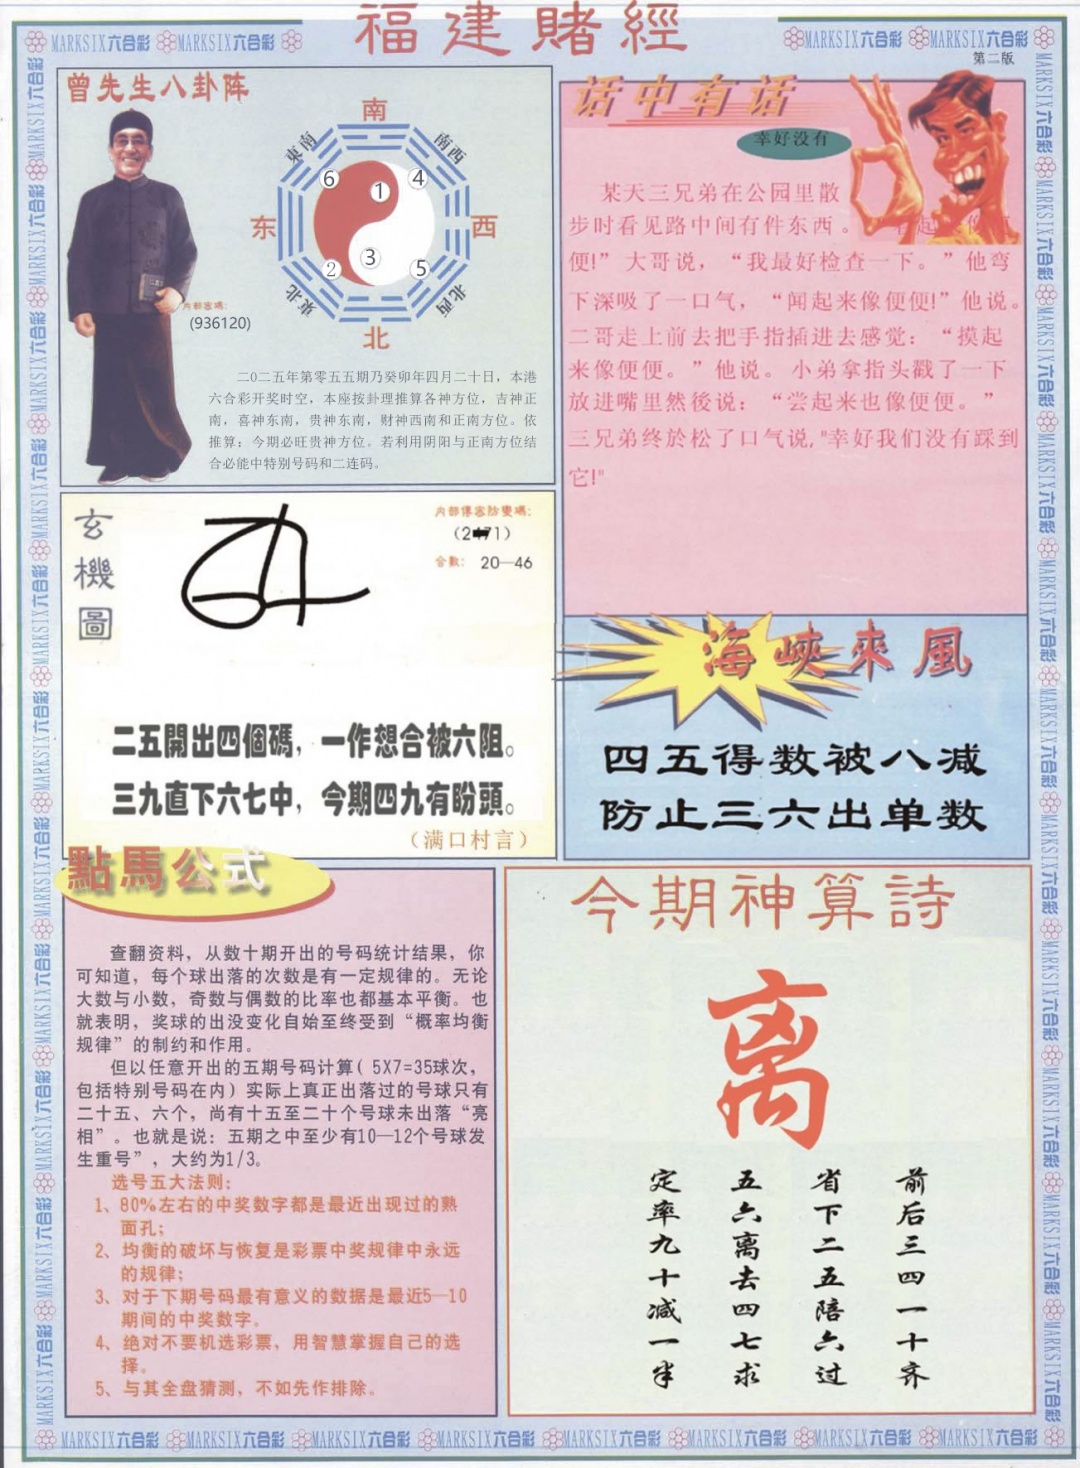 福建賭經
MARKSIX六合彩 MARKSIX六合彩
MARKSIX六合彩 MARKSIX六合彩
第二版
曾先生八卦阵
南
東南
南西
6
1
4
东
西
3
2
5
東北
北西
北
内部密碼:
(936120)
二〇二五年第零五五期乃癸卯年四月二十日，本港
六合彩开奖时空，本座按卦理推算各神方位，吉神正
南，喜神东南，贵神东南，财神西南和正南方位。依
推算：今期必旺贵神方位。若利用阴阳与正南方位结
合必能中特别号码和二连码。
话中有话
幸好没有
某天三兄弟在公园里散
步时看见路中间有件东西。
便!” 大哥说，“我最好检查一下。”他弯
下深吸了一口气，“闻起来像便便!”他说。
二哥走上前去把手指插进去感觉：“摸起
来像便便。”他说。小弟拿指头戳了一下
放进嘴里然後说：“尝起来也像便便。”
三兄弟终於松了口气说,"幸好我们没有踩到
它!"
玄機圖
内部傳密防變碼:
合數: 20—46
二五開出四個碼，一作想合被六阻。
三九直下六七中，今期四九有盼頭。
（满口村言）
海峽來風
四五得数被八减
防止三六出单数
點馬公式
查翻资料，从数十期开出的号码统计结果，你
可知道，每个球出落的次数是有一定规律的。无论
大数与小数，奇数与偶数的比率也都基本平衡。也
就表明，奖球的出没变化自始至终受到“概率均衡
规律”的制约和作用。
但以任意开出的五期号码计算( 5X7=35球次，
包括特别号码在内）实际上真正出落过的号球只有
二十五、六个，尚有十五至二十个号球未出落“亮
相”。也就是说：五期之中至少有10—12个号球发
生重号”，大约为1/3。
选号五大法则:
1、80%左右的中奖数字都是最近出现过的熟
面孔;
2、均衡的破坏与恢复是彩票中奖规律中永远
的规律;
3、对于下期号码最有意义的数据是最近5—10
期间的中奖数字。
4、绝对不要机选彩票，用智慧掌握自己的选
择。
5、与其全盘猜测，不如先作排除。
今期神算詩
离
前后三四一十齐
省下二五陪六过
五六离去四七求
定率九十减一半
MARKSIX六合彩 MARKSIX六合彩 MARKSIX六合彩 MARKSIX六合彩 MARKSIX六合彩 MARKSIX六合彩 MARKSIX六合彩 MARKSIX六合彩